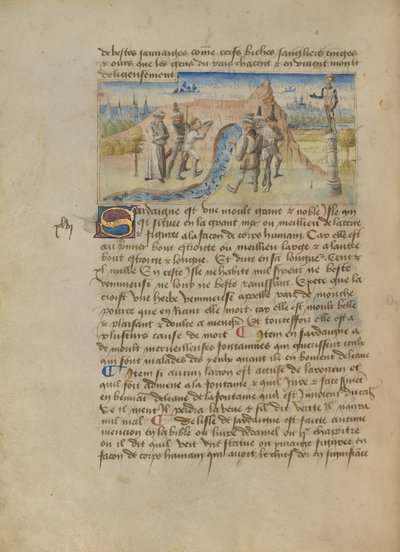 de bestes sauuaiges come cerfs biches sangliers singes
& ours que les gens du pais chacent & en viuent moult
Sardaigne est vne moult grant & noble isle qui
est situee en la grant mer ou meillieu de la terre
figuree a la facon de corps humain. Car elle est
au bout estroicte ou meillieu large & a lautre
bout estroicte & longue. Et dure en sa longueur Cent &
xl mille En ceste isle ne habite nul serpent ne beste
venimeuse ne loup ne beste rauissant. Excepte que la
croist vne herbe venimeuse appellee de
pource que en riant elle mort. car elle est moult belle
& plaisant & doulce a menger Et toutesfois elle est a
plusieurs cause de mort Item en sardaigne a
de moult merueilleuses fontaines qui guerissent ceulx
qui sont malades des yeulx quant ilz en boiuent de leaue
Item si aucun larron est accuse de larrecin &
quil soit admene a la fontaine & quil Jure & face sermet
en beuuant de leaue de la fontaine quil est innocent du cas
Se il ment il perdra la veue & sil dit verite il naura
nul mal De lisle de sardaigne est faicte aucune
mencion en la bible ou liure de daniel ou chapitre
ou il dit quil veit vne statue ou ymaige figuree en
facon de corps humain qui auoit le chief dor en signifiace